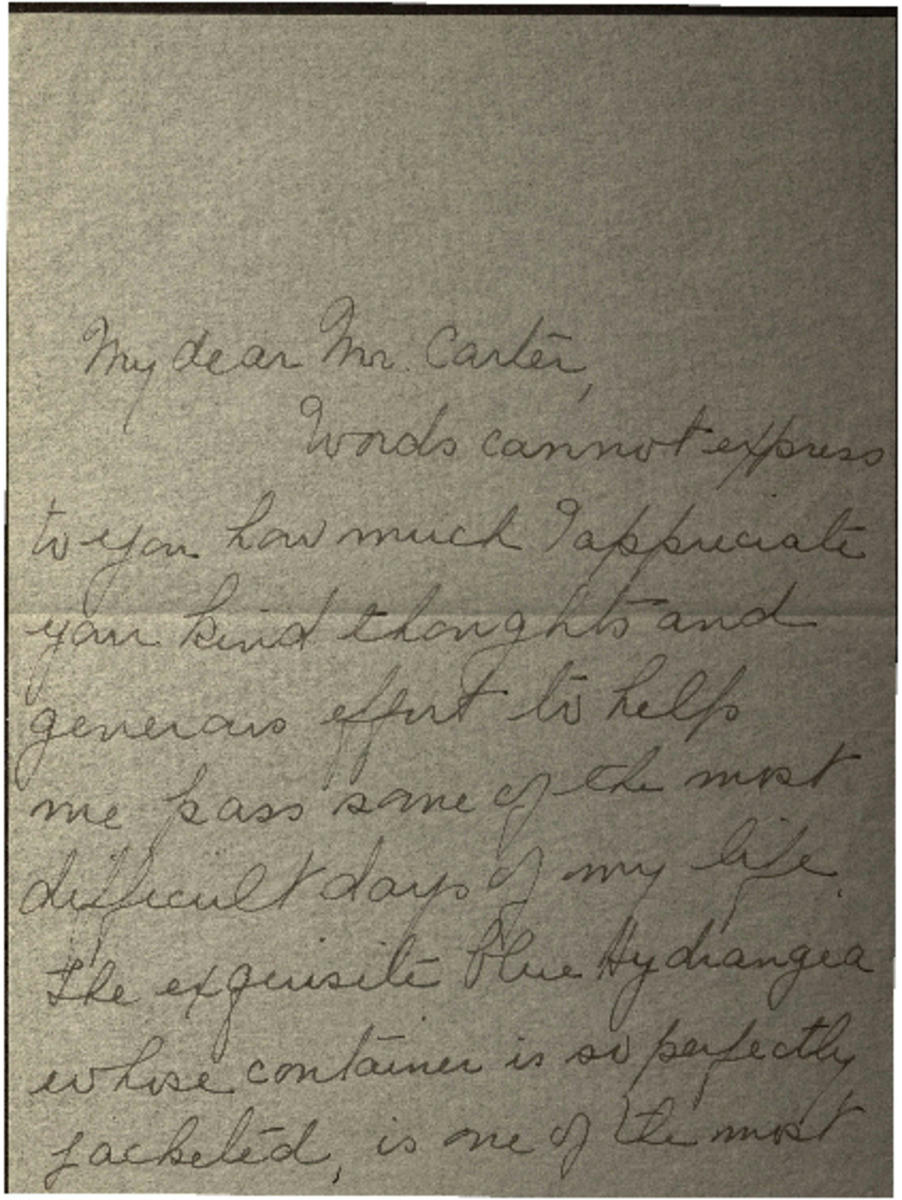 My dear Mr. Carter,
Words cannot express
to you how much I appreciate
your kind thoughts and
generous effort to help
me pass some of the most
difficult days of my life.
The exquisite blue Hydrangea
whose container is so perfectly
jacketed, is one of the most